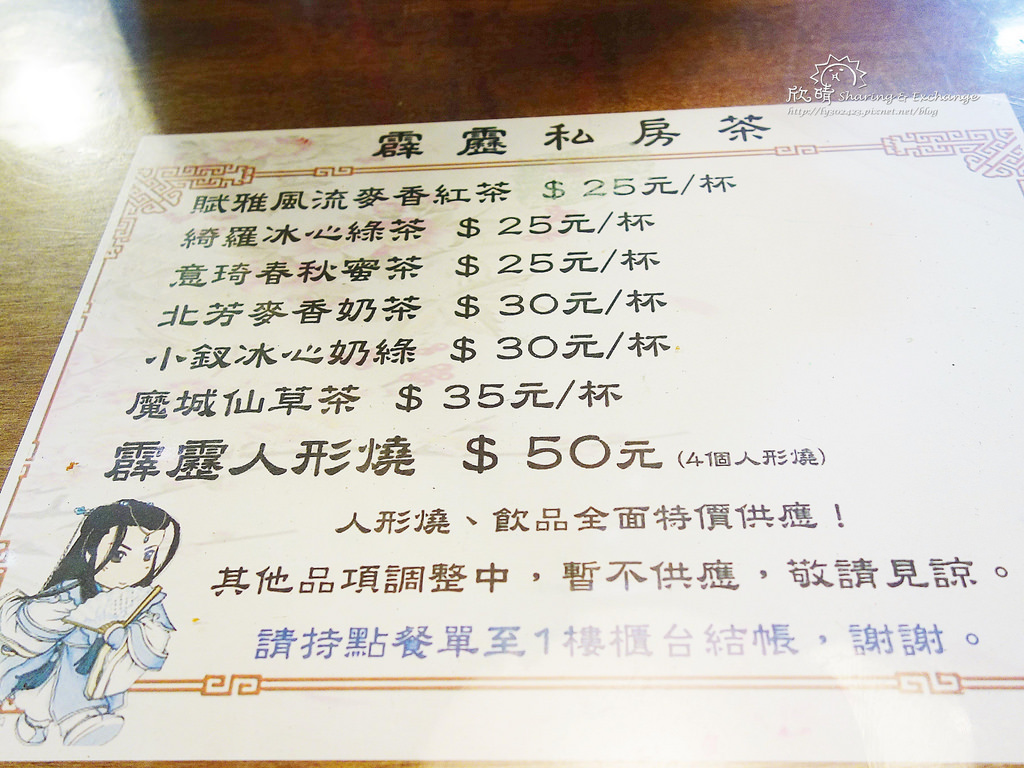 欣晴 Sharing & Exchange
http://ly302423.pixnet.net/blog
霹靂私房茶
賦雅風流麥香紅茶 $ 25元/杯
綺羅冰心綠茶 $ 25元/杯
意琦春秋蜜茶 $ 25元/杯
北芳麥香奶茶 $ 30元/杯
小釵冰心奶綠 $ 30元/杯
魔城仙草茶 $ 35元/杯
霹靂人形燒 $ 50元 (4個人形燒)
人形燒、飲品全面特價供應！
其他品項調整中，暫不供應，敬請見諒。
請持點餐單至1樓櫃台結帳，謝謝。